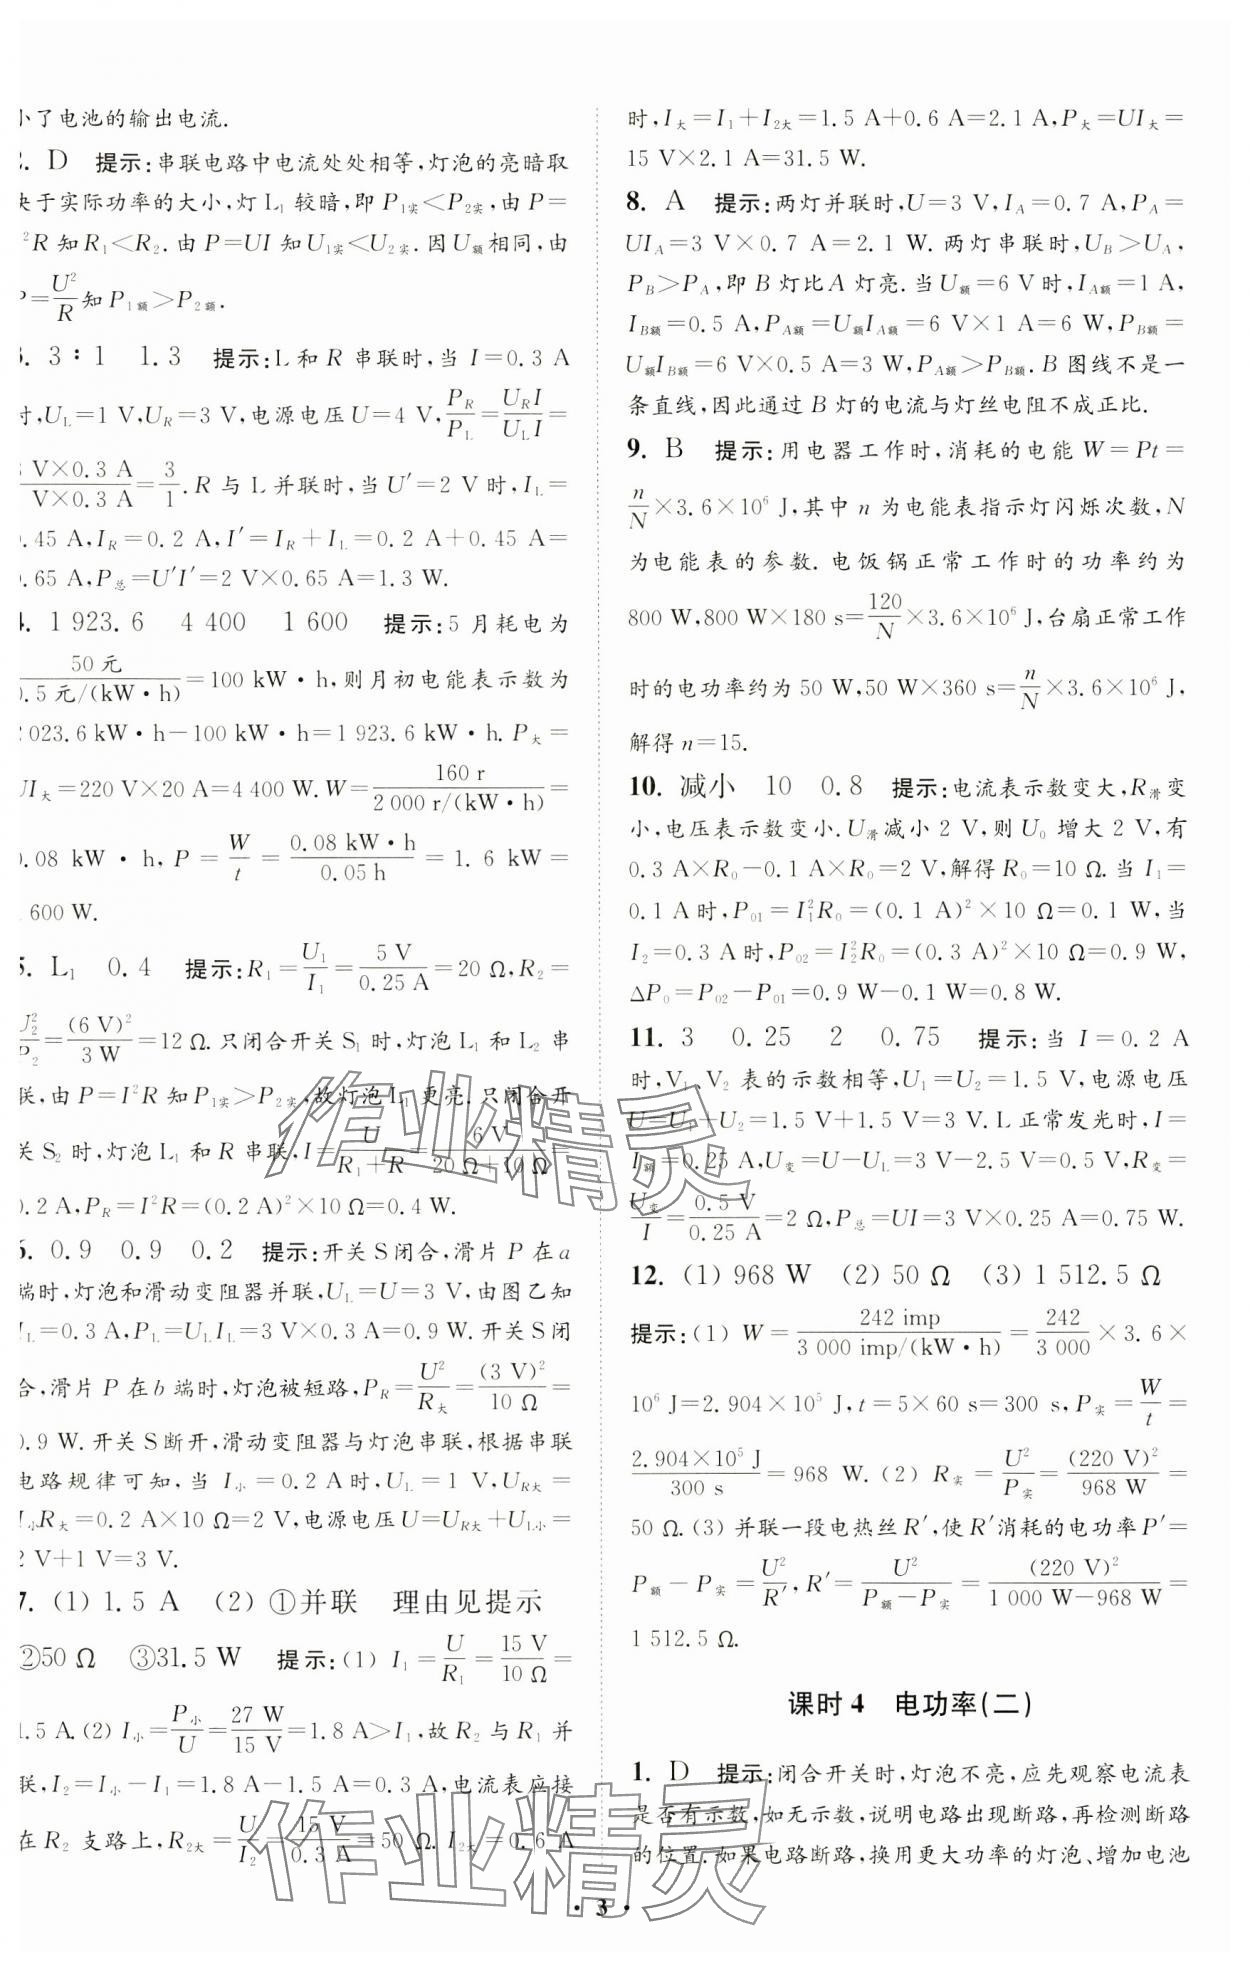 小了电池的输出电流.
2. D 提示:串联电路中电流处处相等,灯泡的亮暗取
决于实际功率的大小,灯 L₁ 较暗,即 P₁实<P₂实,由 P=
I²R 知 R₁<R₂. 由 P=UI 知 U₁实<U₂实. 因 U额 相同,由
P=U²/R 知 P₁额>P₂额.
3. 3∶1 1.3 提示:L 和 R 串联时,当 I=0.3 A
时,U_L=1 V,U_R=3 V,电源电压 U=4 V,P_R/P_L=U_R I/U_L I=
3 V×0.3 A/1 V×0.3 A=3/1. R 与 L 并联时,当 U′=2 V 时,I_L=
0.45 A,I_R=0.2 A,I′=I_R+I_L=0.2 A+0.45 A=
0.65 A,P总=U′I′=2 V×0.65 A=1.3 W.
4. 1 923.6 4 400 1 600 提示:5 月耗电为
50 元/0.5 元/(kW·h)=100 kW·h,则月初电能表示数为
2 023.6 kW·h-100 kW·h=1 923.6 kW·h. P大=
UI大=220 V×20 A=4 400 W. W=160 r/2 000 r/(kW·h)=
0.08 kW·h,P=W/t=0.08 kW·h/0.05 h=1.6 kW=
1 600 W.
5. L₁ 0.4 提示:R₁=U₁/I₁=5 V/0.25 A=20 Ω,R₂=
U₂²/P₂=(6 V)²/3 W=12 Ω. 只闭合开关 S₁ 时,灯泡 L₁ 和 L₂ 串
联,由 P=I²R 知 P₁实>P₂实,故灯泡 L₁ 更亮. 只闭合开
关 S₂ 时,灯泡 L₁ 和 R 串联,I=U/R₁+R=6 V/20 Ω+10 Ω=
0.2 A,P_R=I²R=(0.2 A)²×10 Ω=0.4 W.
6. 0.9 0.9 0.2 提示:开关 S 闭合,滑片 P 在 a
端时,灯泡和滑动变阻器并联,U_L=U=3 V,由图乙知
I_L=0.3 A,P_L=U_L I_L=3 V×0.3 A=0.9 W. 开关 S 闭
合,滑片 P 在 b 端时,灯泡被短路,P_R=U²/R大=(3 V)²/10 Ω=
0.9 W. 开关 S 断开,滑动变阻器与灯泡串联,根据串联
电路规律可知,当 I小=0.2 A 时,U_L=1 V,U_R大=
I小R大=0.2 A×10 Ω=2 V,电源电压 U=U_R大+U_L小=
2 V+1 V=3 V.
7. (1) 1.5 A (2) ①并联 理由见提示
②50 Ω ③31.5 W 提示:(1) I₁=U/R₁=15 V/10 Ω=
1.5 A. (2) I小=P小/U=27 W/15 V=1.8 A>I₁,故 R₂ 与 R₁ 并
联,I₂=I小-I₁=1.8 A-1.5 A=0.3 A,电流表应接
在 R₂ 支路上,R₂大=U/I₂=15 V/0.3 A=50 Ω. I₂大=0.6 A
时,I大=I₁+I₂大=1.5 A+0.6 A=2.1 A,P大=UI大=
15 V×2.1 A=31.5 W.
8. A 提示:两灯并联时,U=3 V,I_A=0.7 A,P_A=
UI_A=3 V×0.7 A=2.1 W. 两灯串联时,U_B>U_A,
P_B>P_A,即 B 灯比 A 灯亮. 当 U额=6 V 时,I_A额=1 A,
I_B额=0.5 A,P_A额=U额I_A额=6 V×1 A=6 W,P_B额=
U额I_B额=6 V×0.5 A=3 W,P_A额>P_B额. B 图线不是一
条直线,因此通过 B 灯的电流与灯丝电阻不成正比.
9. B 提示:用电器工作时,消耗的电能 W=Pt=
n/N×3.6×10⁶ J,其中 n 为电能表指示灯闪烁次数,N
为电能表的参数. 电饭锅正常工作时的功率约为
800 W,800 W×180 s=120/N×3.6×10⁶ J,台扇正常工作
时的电功率约为 50 W,50 W×360 s=n/N×3.6×10⁶ J,
解得 n=15.
10. 减小 10 0.8 提示:电流表示数变大,R滑 变
小,电压表示数变小. U滑 减小 2 V,则 U₀ 增大 2 V,有
0.3 A×R₀-0.1 A×R₀=2 V,解得 R₀=10 Ω. 当 I₁=
0.1 A 时,P₀₁=I₁²R₀=(0.1 A)²×10 Ω=0.1 W,当
I₂=0.3 A 时,P₀₂=I₂²R₀=(0.3 A)²×10 Ω=0.9 W,
ΔP₀=P₀₂-P₀₁=0.9 W-0.1 W=0.8 W.
11. 3 0.25 2 0.75 提示:当 I=0.2 A
时,V₁、V₂ 表的示数相等,U₁=U₂=1.5 V,电源电压
U=U₁+U₂=1.5 V+1.5 V=3 V. L 正常发光时,I=
I额=0.25 A,U变=U-U_L=3 V-2.5 V=0.5 V,R变=
U变/I=0.5 V/0.25 A=2 Ω,P总=UI=3 V×0.25 A=0.75 W.
12. (1) 968 W (2) 50 Ω (3) 1 512.5 Ω
提示:(1) W=242 imp/3 000 imp/(kW·h)=242/3 000×3.6×
10⁶ J=2.904×10⁵ J,t=5×60 s=300 s,P实=W/t=
2.904×10⁵ J/300 s=968 W. (2) R实=U²/P实=(220 V)²/968 W=
50 Ω. (3) 并联一段电热丝 R′,使 R′消耗的电功率 P′=
P额-P实=U²/R′,R′=U²/P额-P实=(220 V)²/1 000 W-968 W=
1 512.5 Ω.
课时 4 电功率(二)
1. D 提示:闭合开关时,灯泡不亮,应先观察电流表
是否有示数,如无示数,说明电路出现断路,再检测断路
的位置. 如果电路断路,换用更大功率的灯泡、增加电池
· 3 ·
作业精灵
作业精灵